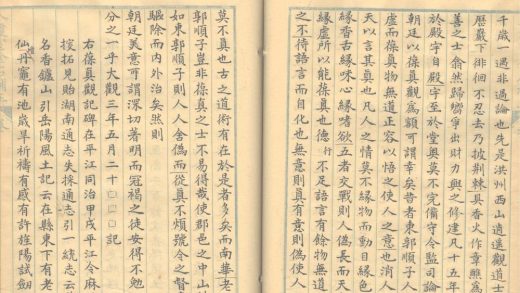 千歲一遇非過論也先是洪州西山逍遙觀道士
曆巖下徘徊不忍去乃披荆棘具香火作章醮為
善之士翕然歸鄉爭出財力興之修建凡十五年
於殿自殿字至於堂奧莫不完備守令監司論
朝廷以葆真觀為額可謂幸矣昔者東郭順子
虛而葆真物無道正容以悟之使人之意也消人
天以言其真也凡人之情莫不緣物而動目緣色
緣香舌緣味心緣嗜欲五者交戰則人偽長而天
緣虛所以能葆真也德行不足語言有餘物無
之不待語言而自化也無意則真有意則偽使人
莫不真也古之道術有在於是者多矣而南華老
郭順子豈非葆真之士不易得哉使郡邑之中山
如東郭順子則人人舍偽而從真不煩號令之督
驅除而內外治矣然則
朝廷美意可謂深切著明而冠褐之徒安得不
分之一乎大觀三年五月二十□□□□記
右葆真觀記碑在平江同治甲戌平江令麻
搜拓見貽湖南通志失採通志引一統志云
名香鑪山引岳陽風土記云在縣東下有老
仙丹竈有池歲旱祈禱有感有許旌陽試劍